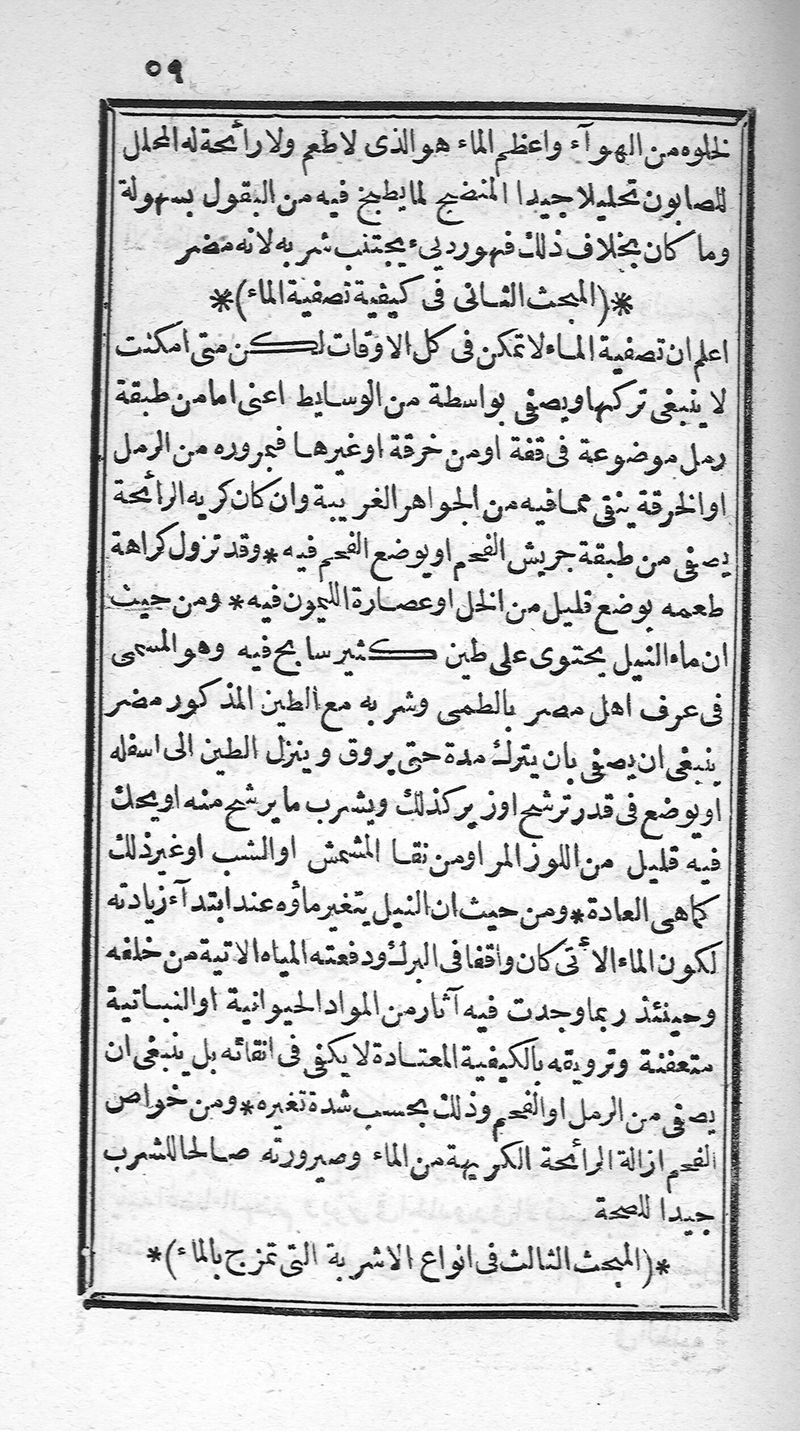 ٥٩
لخلوه من الهوآء واعظم الماء هو الذى لا طعم ولا رائحة له المحلل
للصابون تحليلا جيدا المنضج لما يطبخ فيه من البقول بسهولة
وما كان بخلاف ذلك فهو ردىء يجتنب شربه لانه مضر
*(المبحث الثانى فى كيفية تصفية الماء)*
اعلم ان تصفية الماء لا تمكن فى كل الاوقات لكن متى امكنت
لا ينبغى تركها ويصفى بواسطة من الوسايط اعنى اما من طبقة
رمل موضوعة فى قفة او من خرقة او غيرها فبمروره من الرمل
او الخرقة ينقى مما فيه من الجواهر الغريبة وان كان كريه الرائحة
يصفى من طبقة جريش الفحم او يوضع الفحم فيه * وقد تزول كراهة
طعمه بوضع قليل من الخل او عصارة الليمون فيه * ومن حيث
ان ماء النيل يحتوى على طين كثير سابح فيه وهو المسمى
فى عرف اهل مصر بالطمى وشربه مع الطين المذكور مضر
ينبغى ان يصفى بان يترك مدة حتى يروق وينزل الطين الى اسفله
او يوضع فى قدر ترشح او زير كذلك ويشرب ما يرشح منه او يحك
فيه قليل من اللوز المر او من نقا المشمش او الشب او غير ذلك
كما هى العادة * ومن حيث ان النيل يتغير ماؤه عند ابتدآء زيادته
لكون الماء الأتى كان واقفا فى البرك ودفعته المياه الاتية من خلفه
وحينئذ ربما وجدت فيه آثار من المواد الحيوانية او النباتية
متعفنة وترويقه بالكيفية المعتادة لا يكفى فى انقائه بل ينبغى ان
يصفى من الرمل او الفحم وذلك بحسب شدة تغيره * ومن خواص
الفحم ازالة الرائحة الكريهة من الماء وصيرورته صالحا للشرب
جيدا للصحة
*(المبحث الثالث فى انواع الاشربة التى تمزج بالماء)*